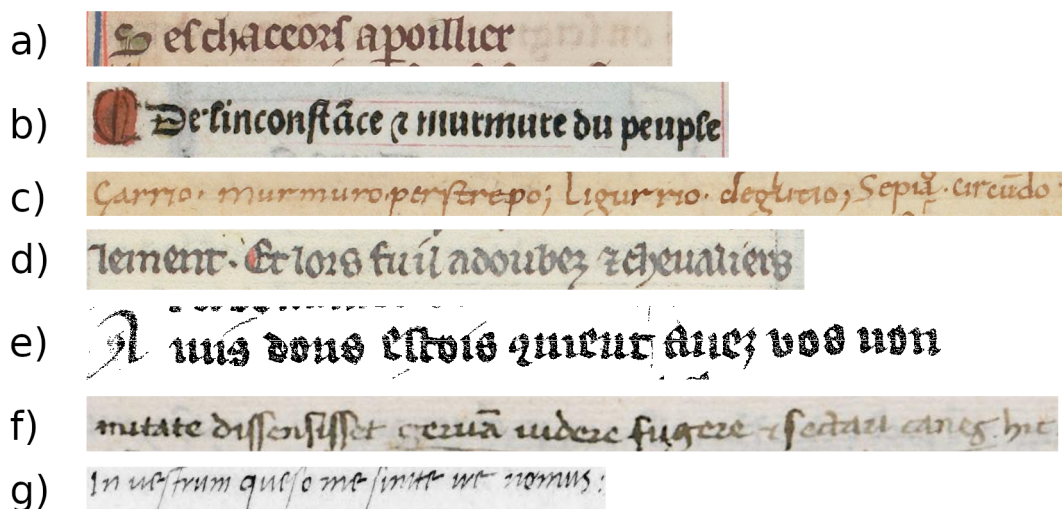 a) S eschaceors apoillier
b) De linconstãce ⁊ murmure du peuple
c) Carrio· murmuro·perstrepo; Ligurrio· deglutio; Sepio· circũdo
d) lement· Et lors fu il adoubez ⁊ cheualiers
e) A uus dous estois quient auez vos non
f) mitate dissensisset ceruã uidere fugere ⁊ sectari canes hic
g) In uestrum queso me sinite ire nomus: